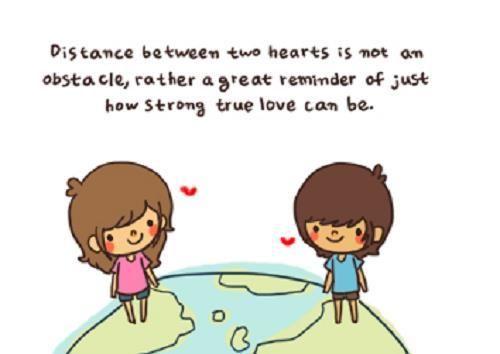 Distance between two hearts is not an
obstacle, rather a great reminder of just
how strong true love can be.